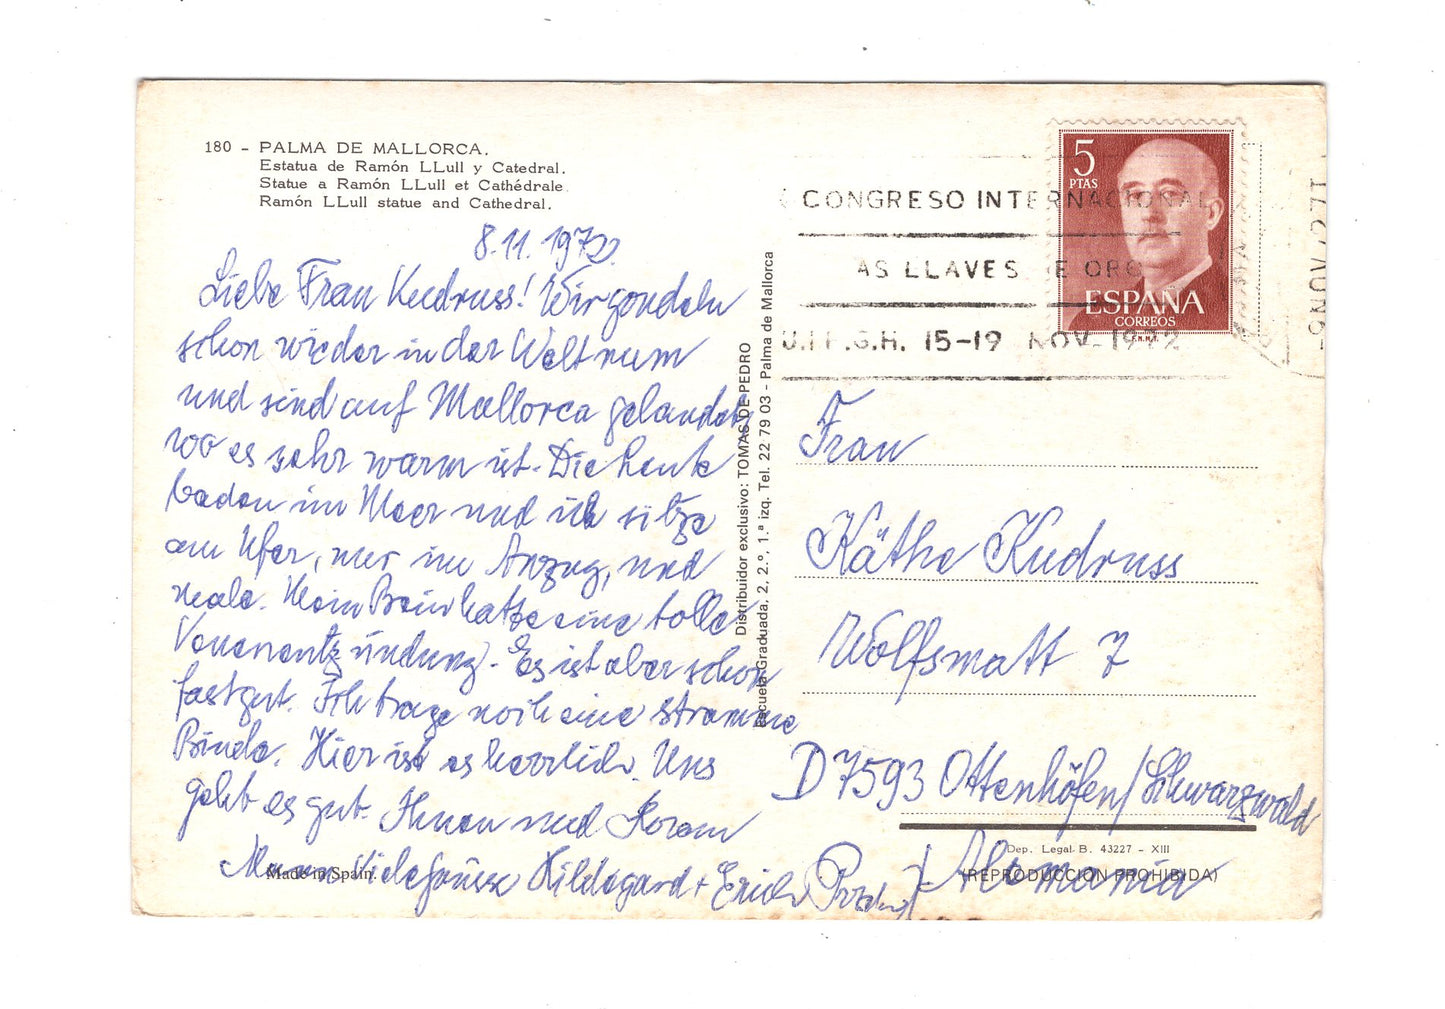 180 - PALMA DE MALLORCA.
Estatua de Ramón LLull y Catedral.
Statue a Ramón LLull et Cathédrale
Ramón LLull statue and Cathedral.
8.11.1972.
Liebe Frau Kudruss! Wir gondeln
schon wieder in der Welt rum
und sind auf Mallorca gelandet,
wo es sehr warm ist. Die Leute
baden im Meer und ich sitze
am Ufer, nur im Anzug, und
male. Mein Bein hatte eine tolle
Venenentzündung. Es ist aber schon
fast gut. Ich trage noch eine stramme
Binde. Hier ist es herrlich. Uns
geht es gut. Ihnen und Ihrem
Mann viele Grüsse Hildegard + Erich
Made in Spain.
Distribuidor exclusivo: TOMAS DE PEDRO
Escuela Graduada, 2, 2.°, 1.ª izq. Tel. 22 79 03 - Palma de Mallorca
5
PTAS
ESPAÑA
CORREOS
F.N.M.T.
CONGRESO INTERNACIONAL
AS LLAVES DE ORO
U.I.P.G.H. 15-19 NOV. 1972
Frau
Käthe Kudruss
Wolfsmatt 7
D 7593 Ottenhöfen/Schwarzwald
Dep. Legal B. 43227 - XIII
(REPRODUCCION PROHIBIDA)
Alemania